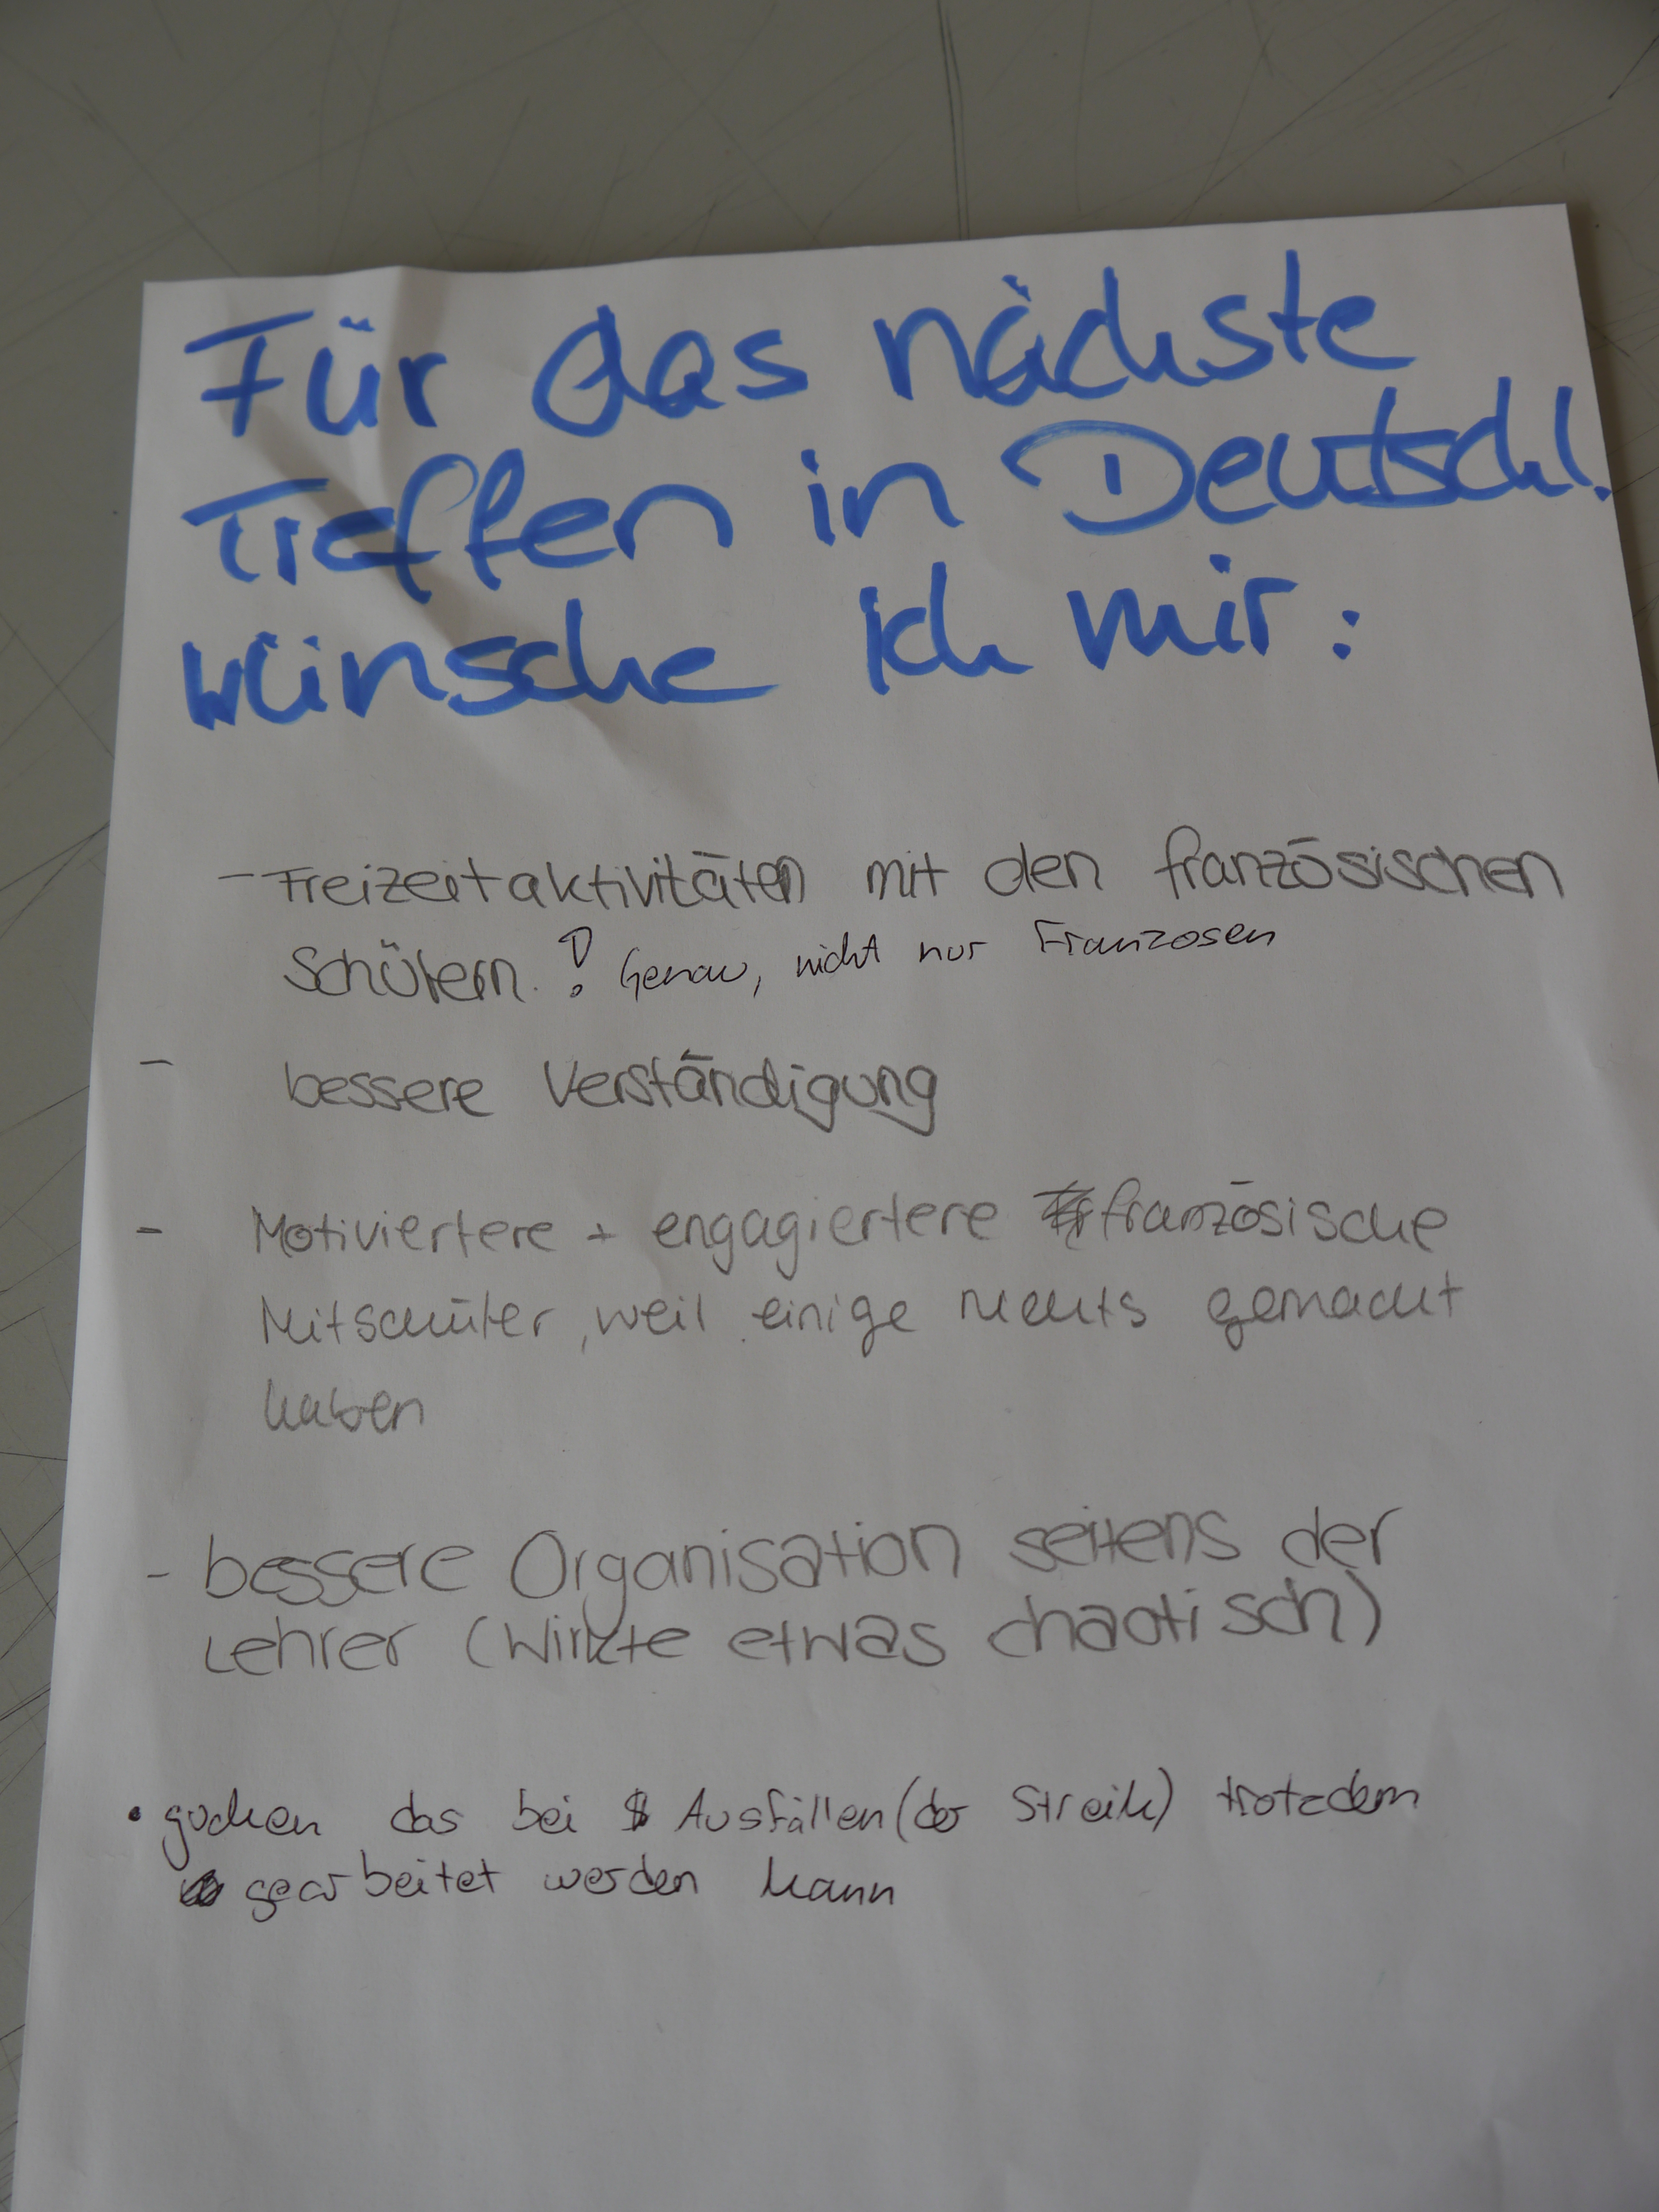 Für das nächste
Treffen in Deutschl.
wünsche ich mir:
- Freizeitaktivitäten mit den französischen
Schülern. ! Genau, nicht nur Franzosen
- bessere Verständigung
- Motiviertere + engagiertere französische
Mitschüler, weil einige nichts gemacht
haben
- bessere Organisation seitens der
Lehrer (Wirkte etwas chaotisch)
• gucken das bei Ausfällen (der Streik) trotzdem
gearbeitet werden kann